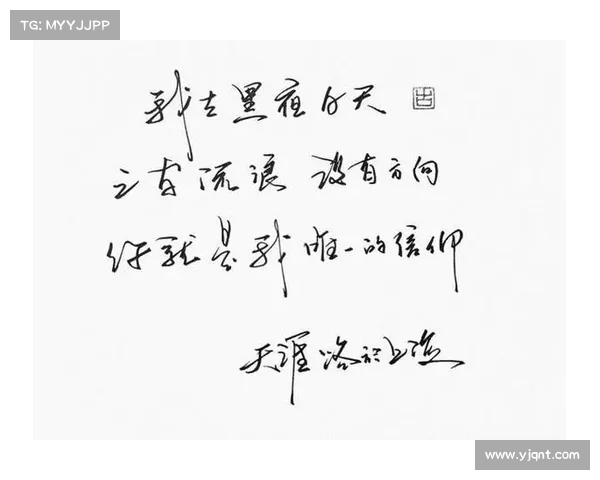 TG: MYYJJPP
我在黑夜白天
之间流浪 没有方向
你就是我唯一的信仰
天涯路
www.yjqnt.com